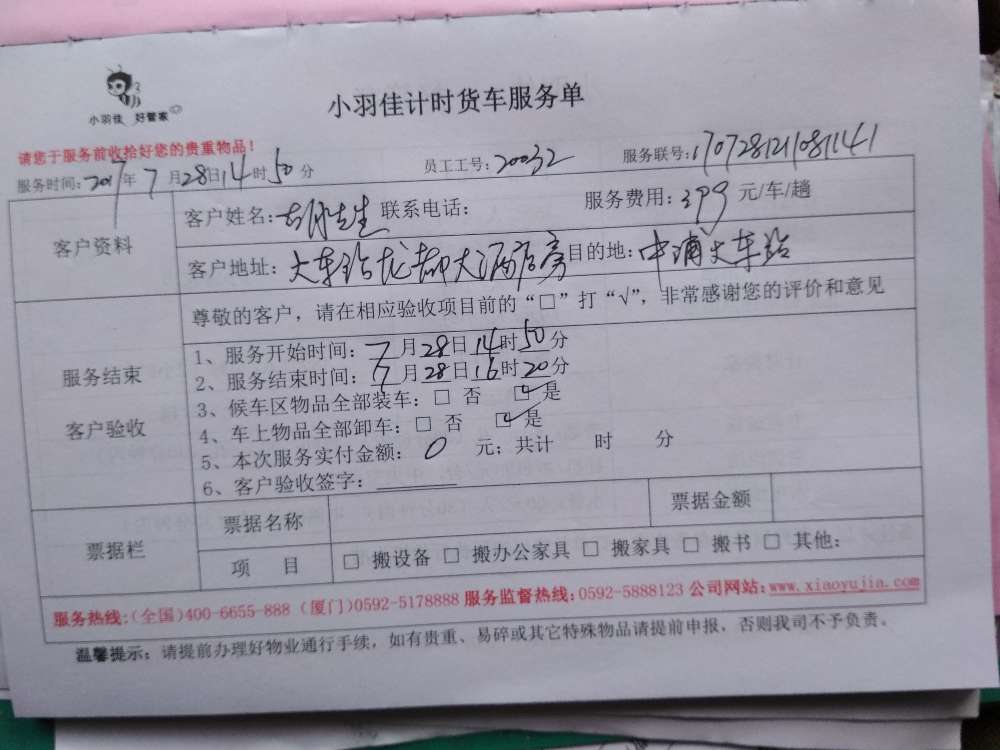 小羽佳 好管家
小羽佳计时货车服务单
请您于服务前收拾好您的贵重物品！
服务时间：2017年7月28日14时50分 员工工号：20032 服务联号：170728121081141
客户资料
客户姓名：胡先生 联系电话： 服务费用：399元/车/趟
客户地址：火车站龙都大酒店旁 目的地：中浦火车站
服务结束
客户验收
尊敬的客户，请在相应验收项目前的“□”打“√”，非常感谢您的评价和意见
1、服务开始时间：7月28日14时50分
2、服务结束时间：7月28日16时20分
3、候车区物品全部装车：□ 否 ☑ 是
4、车上物品全部卸车：□ 否 ☑ 是
5、本次服务实付金额：0 元；共计 时 分
6、客户验收签字：
票据栏
票据名称 票据金额
项 目 □ 搬设备 □ 搬办公家具 □ 搬家具 □ 搬书 □ 其他：
服务热线：(全国)400-6655-888 (厦门)0592-5178888 服务监督热线：0592-5888123 公司网站：www.xiaoyujia.com
温馨提示：请提前办理好物业通行手续，如有贵重、易碎或其它特殊物品请提前申报，否则我司不予负责。